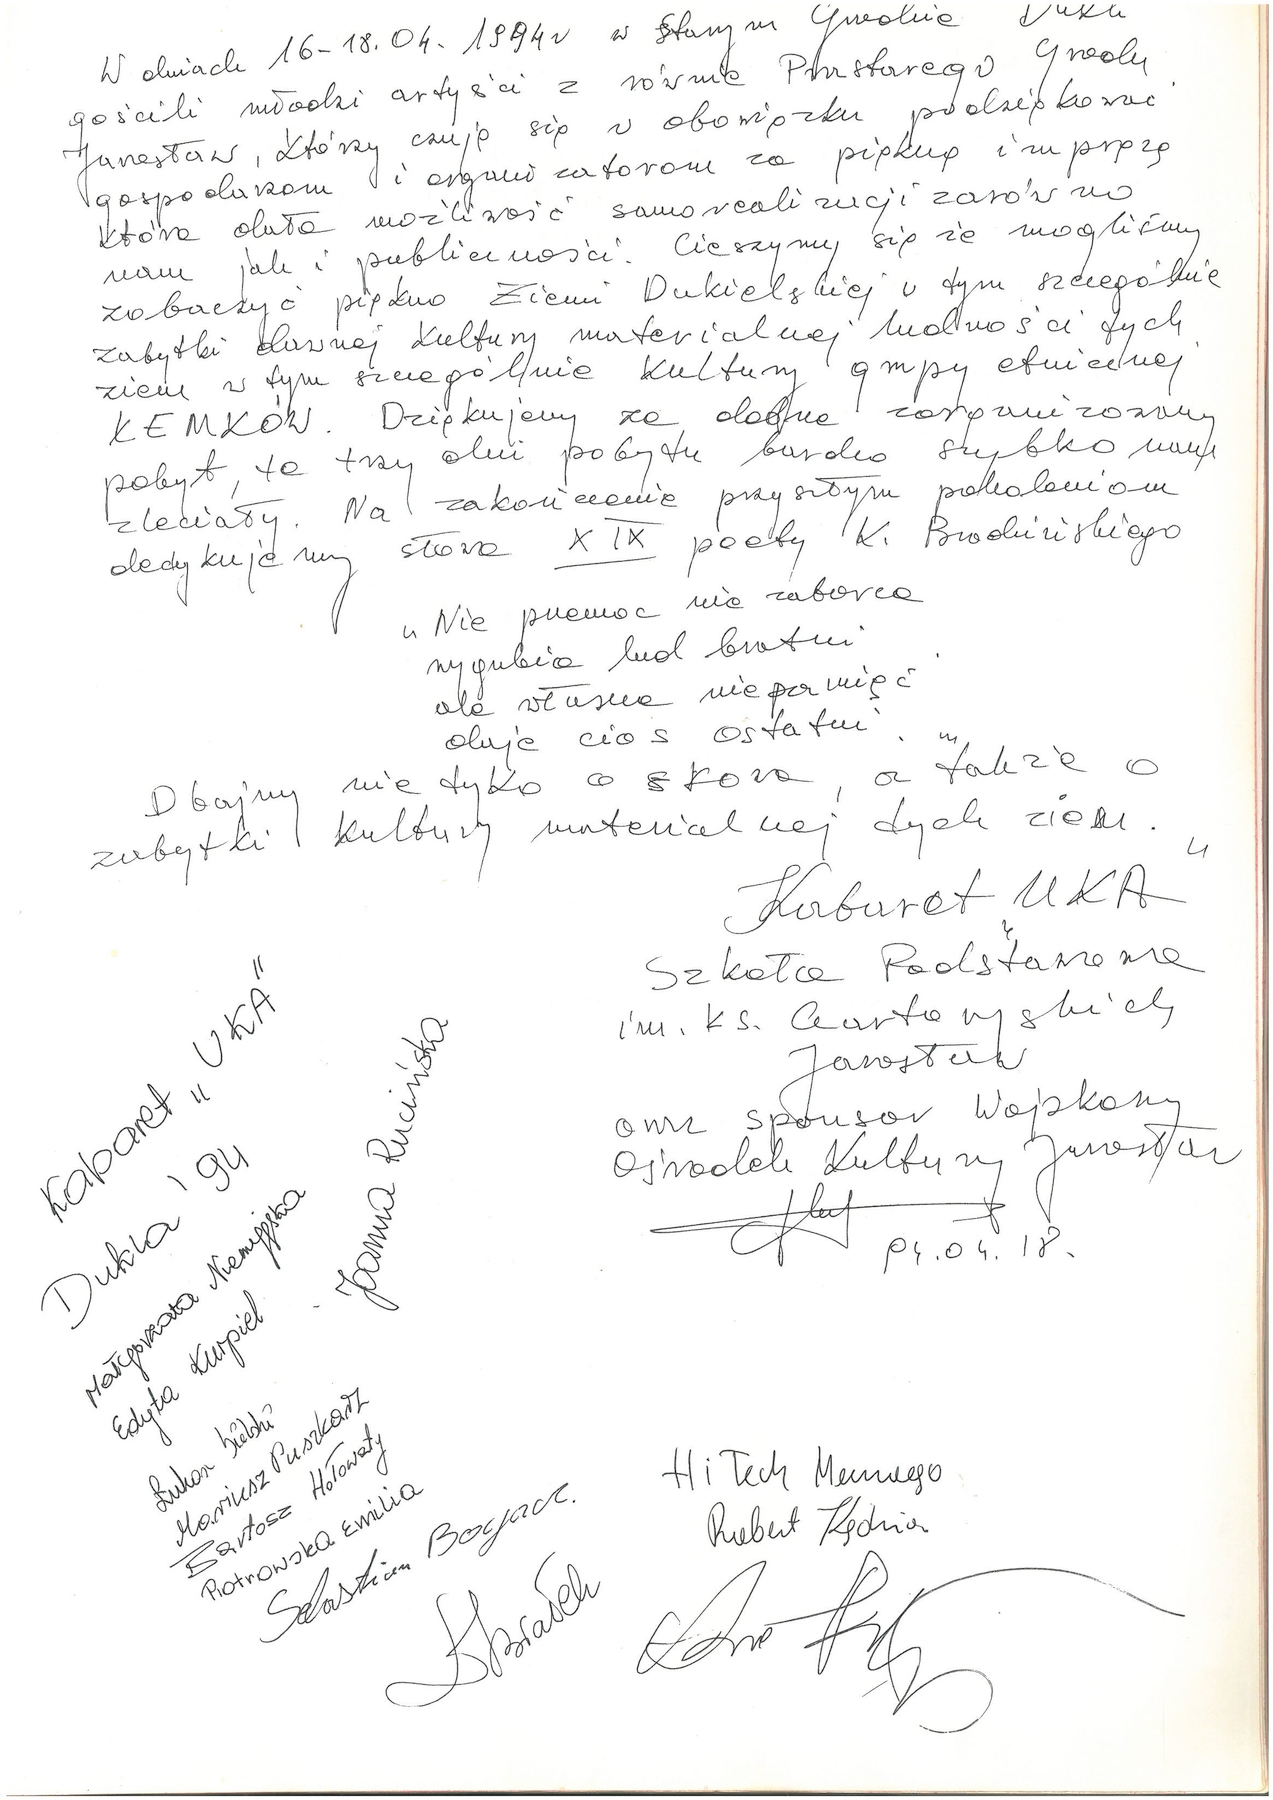 W dniach 16-18.04.1994r w Starym Grodzie Dukli
gościli młodzi artyści z równie Prastarego Grodu
Jarosław, którzy czują się w obowiązku podziękować
gospodarzom i organizatorom za piękną imprezę
która dała możliwość samorealizacji zarówno
nam jak i publiczności. Cieszymy się że mogliśmy
zobaczyć piękno Ziemi Dukielskiej w tym szczególnie
zabytki dawnej kultury materialnej ludności tych
ziem w tym szczególnie kultury grupy etnicznej
ŁEMKÓW. Dziękujemy za dobrze zorganizowany
pobyt, te trzy dni pobytu bardzo szybko nam
zleciały. Na zakończenie przyszłym pokoleniom
dedykujemy słowa XIX poety K. Brodzińskiego
„Nie przemoc nie zaborca
wygubia lud bratni
ale własna niepamięć
daje cios ostatni."
Dbajmy nie tyko o słowa, a także o
zabytki kultury materialnej tych ziem.
Kabaret „UKA"
Szkoła Podstawowa
im. ks. Czartoryskich
Jarosław
oraz sponsor Wojskowy
Ośrodek Kultury Jarosław
94.04.18.
Kabaret „UKA"
Dukla '94
Małgorzata
Edyta Kurpiel
Joanna Rucińska
Łukasz
Mariusz Puszkarz
Bartosz Hołowaty
Piotrowska Emilia
Sebastian Bogacz.
Hi Tech
Robert